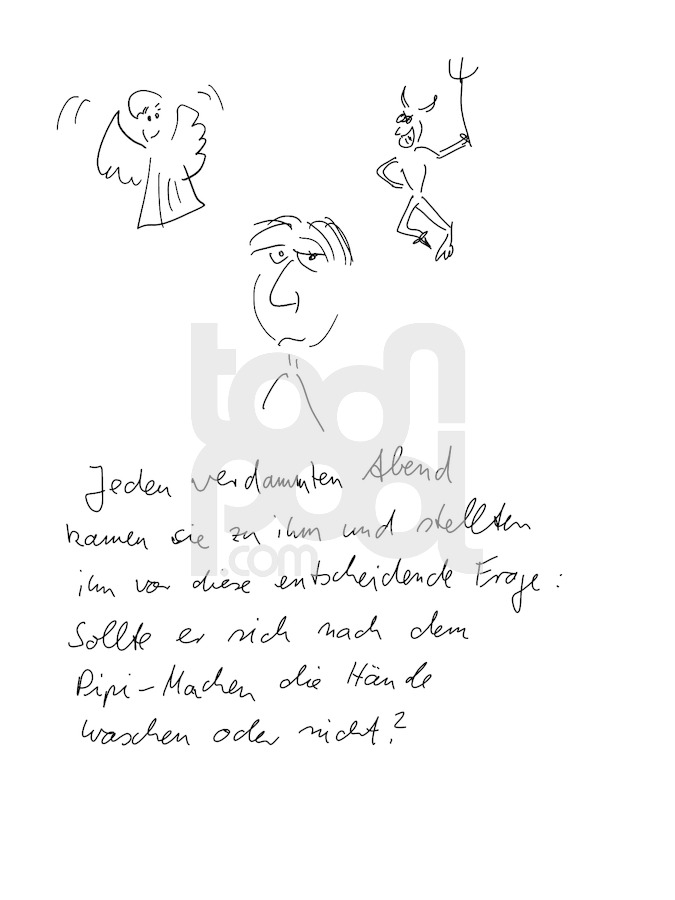 Jeden verdammten Abend
kamen sie zu ihm und stellten
ihm vor diese entscheidende Frage:
Sollte er sich nach dem
Pipi-Machen die Hände
waschen oder nicht?
toon
pool
.com